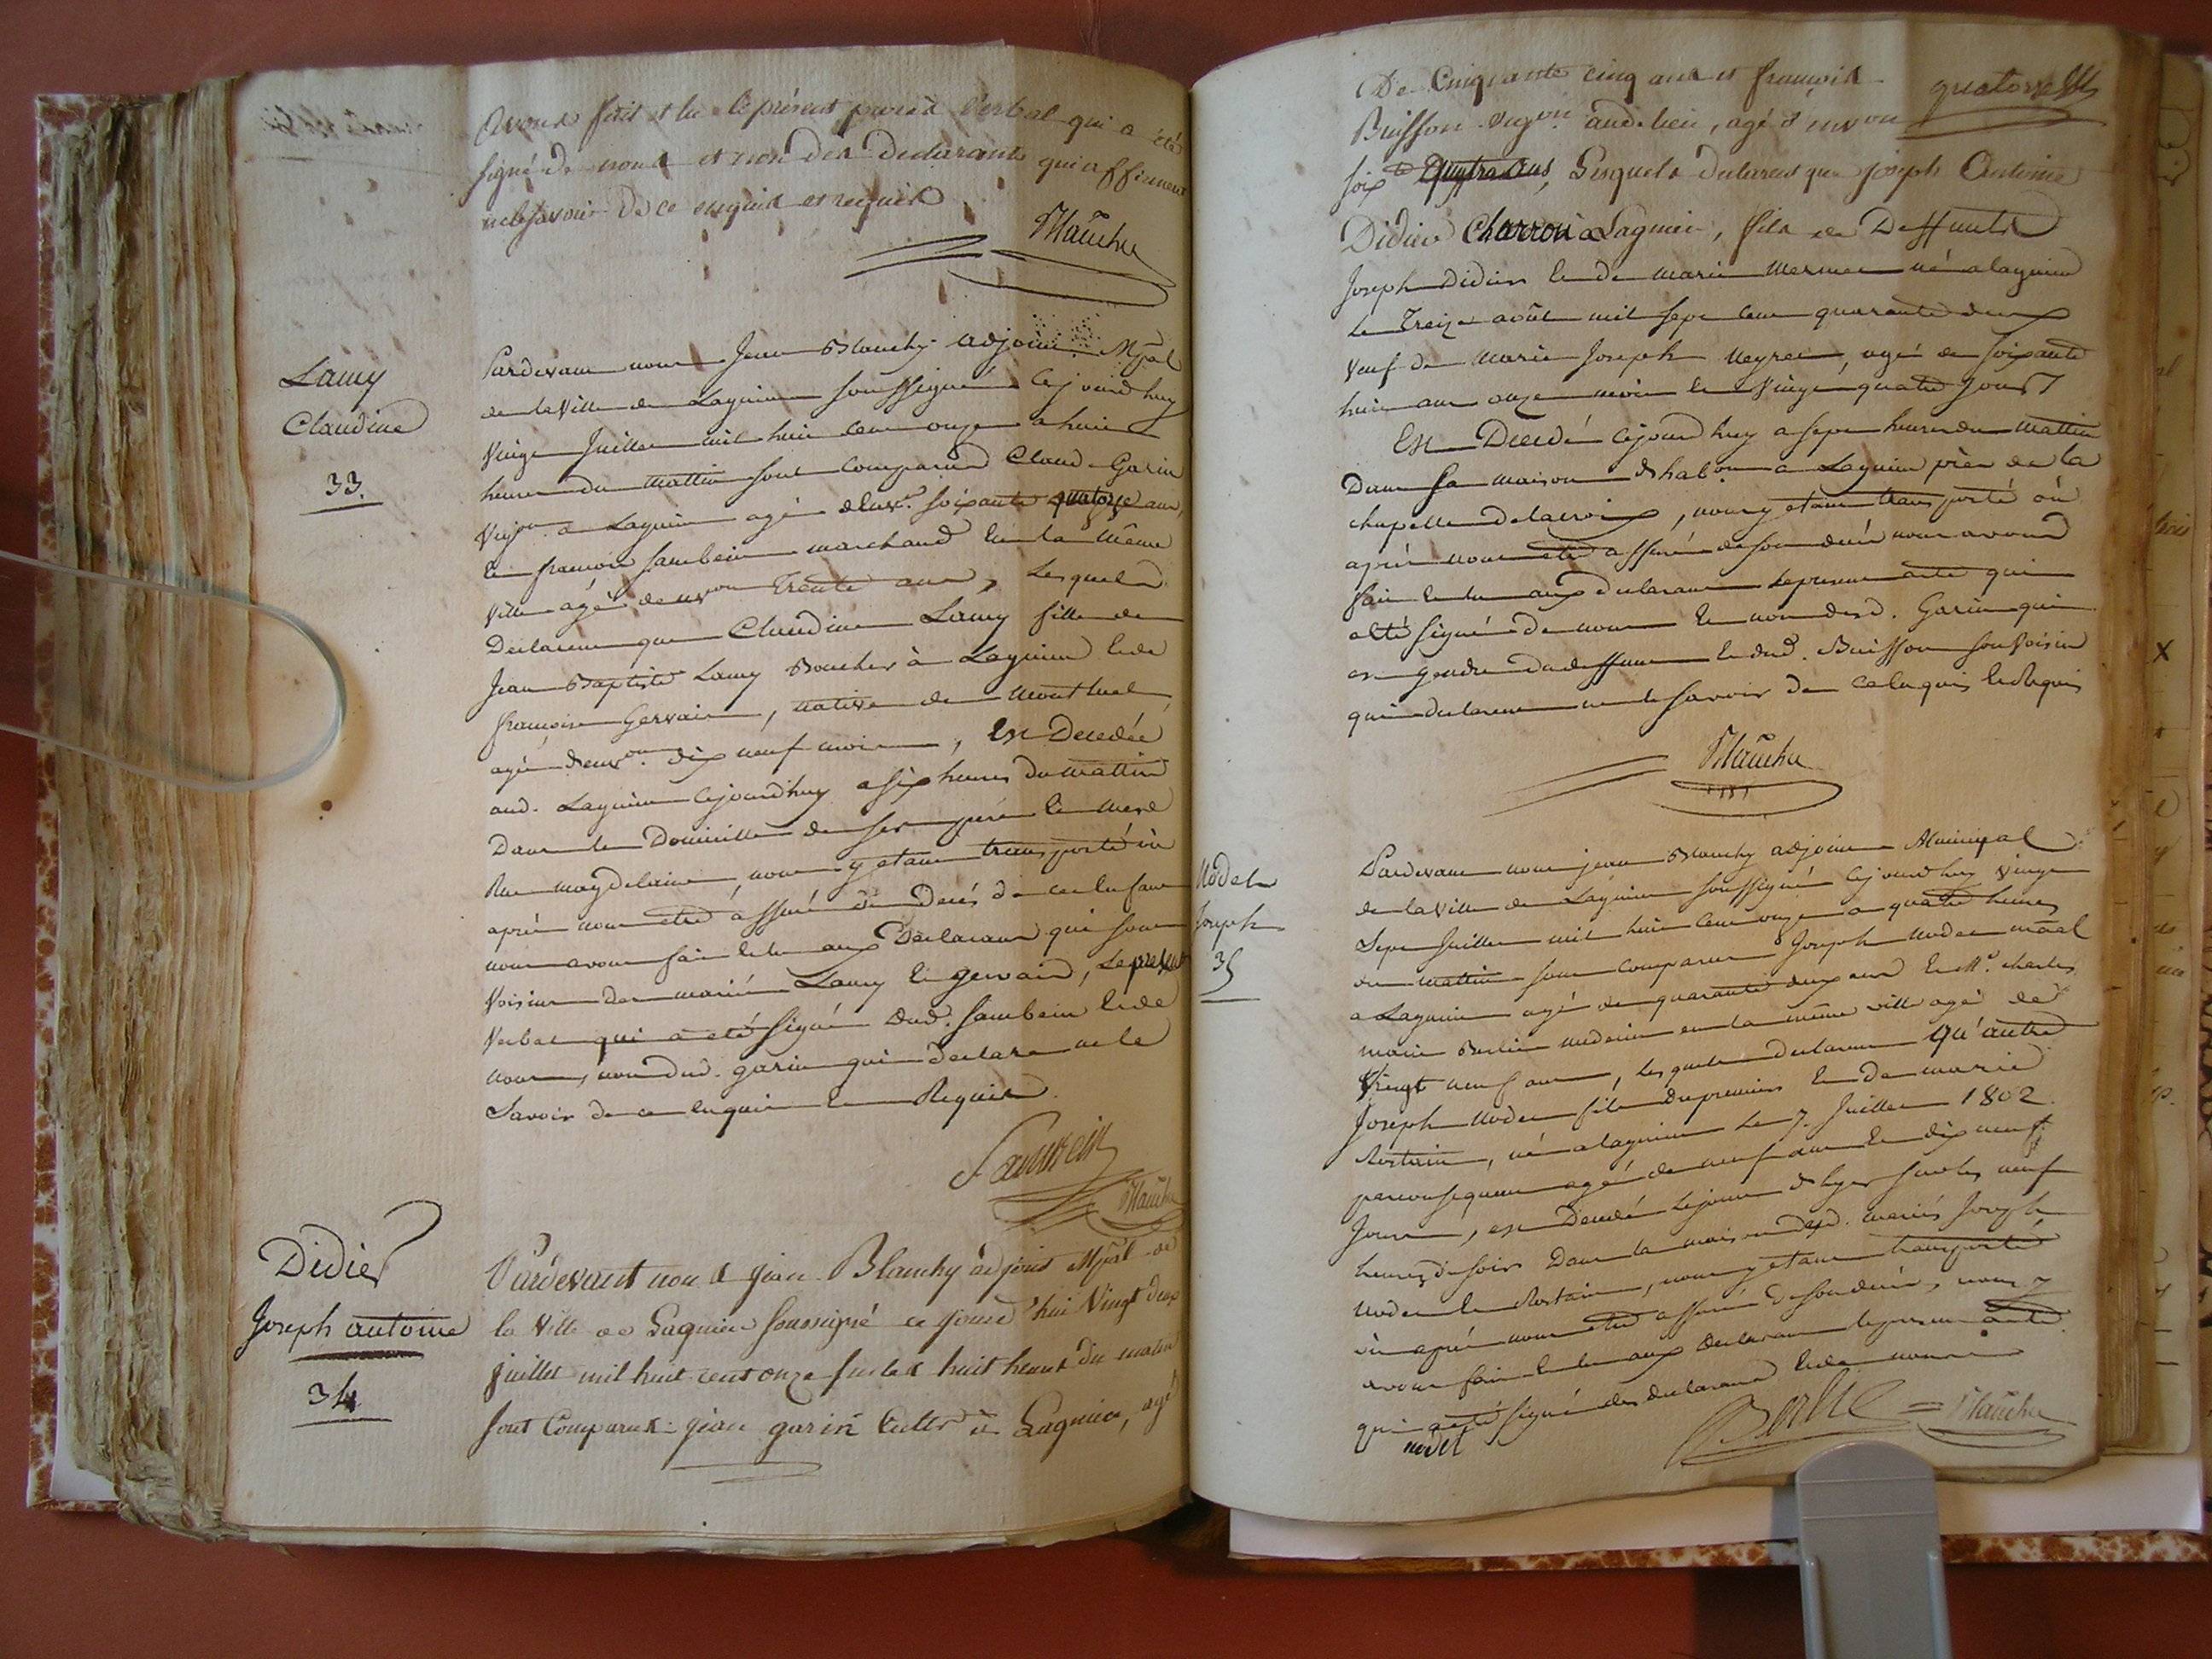 avons fait et lu le présent procès verbal qui a été
signé de nous et non des declarants qui affirment
ne le savoir de ce enquis et requis
Blanchy
Lamy
Claudine
33.
Pardevant nous Jean Blanchy adjoint Mpal
de la ville de Lagnieu soussigné cejourdhuy
vingt Juillet mil huit cent onze a huit
heures du mattin sont comparus Claude Garin
vigon a Lagnieu agé denv.on soixante quatorze ans,
et françois Jambein marchand en la même
ville agé denvon trente ans, Lesquels
Declarent que Claudine Lamy fille de
Jean Baptiste Lamy Boucher à Lagnieu et de
françoise Gervais, native de Montluel,
agée denv.on dix neuf mois, est Decedée
aud. Lagnieu cejourdhuy a six heures du mattin
Dans le Domicille de ses père et mere
Rue magdelaine, nous y etant transporté où
après nous etre assuré du Decés de cet enfant
nous avons fait et lu aux Déclarans qui sont
voisins des mariés Lamy et gervais, le present
verbal qui a été signé dud. Jambein et de
nous, non dud. garin qui declare ne le
savoir de ce enquis et Requis.
Blanchy
Didier
Joseph antoine
34
Pardevant nous jean Blanchy adjoint Mpal de
la ville de Lagnieu soussigné ce jourd'hui vingt deux
juillet mil huit cent onze sur les huit heures du matin
sont Comparus jean garin cultr à Lagnieu, agé
De Cinquante cinq ans et françois
Buisson vigon aud. lieu, agé d'envon quatorze
soix.te quatre ans, Lesquels declarent que joseph Antoine
Didier Charron a Lagnieu, fils de Deffunts
Joseph Didier et de marie mermet né a lagnieu
le Treize août mil sept cent quarante deux
veuf de Marie Joseph Neyret, agé de soixante
huit ans onze mois et vingt quatre jours
Est Decedé cejourdhuy a sept heures du mattin
Dans sa maison dhab.on a Lagnieu près de la
chapelle de lacroix, nous y etant transporté où
après nous etre assuré de son decés nous avons
fait et lu aux declarans le present acte qui
a été signé de nous et non desd. Garin qui
est gendre du deffunt et dud. Buisson son voisin
qui declarent ne le savoir de ce enquis et Requis
Blanchy
Nodet
Joseph
35
Pardevant nous jean Blanchy adjoint Municipal
de la ville de Lagnieu soussigné cejourdhuy vingt
sept Juillet mil huit cent onze a quatre heures
du mattin sont comparus Joseph Nodet mãal
a Lagnieu agé de quarante deux ans et Mr. charles
marie Berlie medecin en la même ville agé de
vingt neuf ans, lesquels declarent qu'autre
Joseph Nodet fils du premier et de marie
Rostain, né a lagnieu le 7. Juillet 1802.
par consequent agé de neuf ans et dix neuf
jours, est Decedé le jour d'hyer sur les neuf
heures du soir Dans la maison desd. mariés Joseph
Nodet et Rostain, nous y etant transporté
où après nous etre assuré de son decés, nous
avons fait et lu aux declarans le present acte
qui a été signé des declarans et de nous
nodet
Berlie
Blanchy